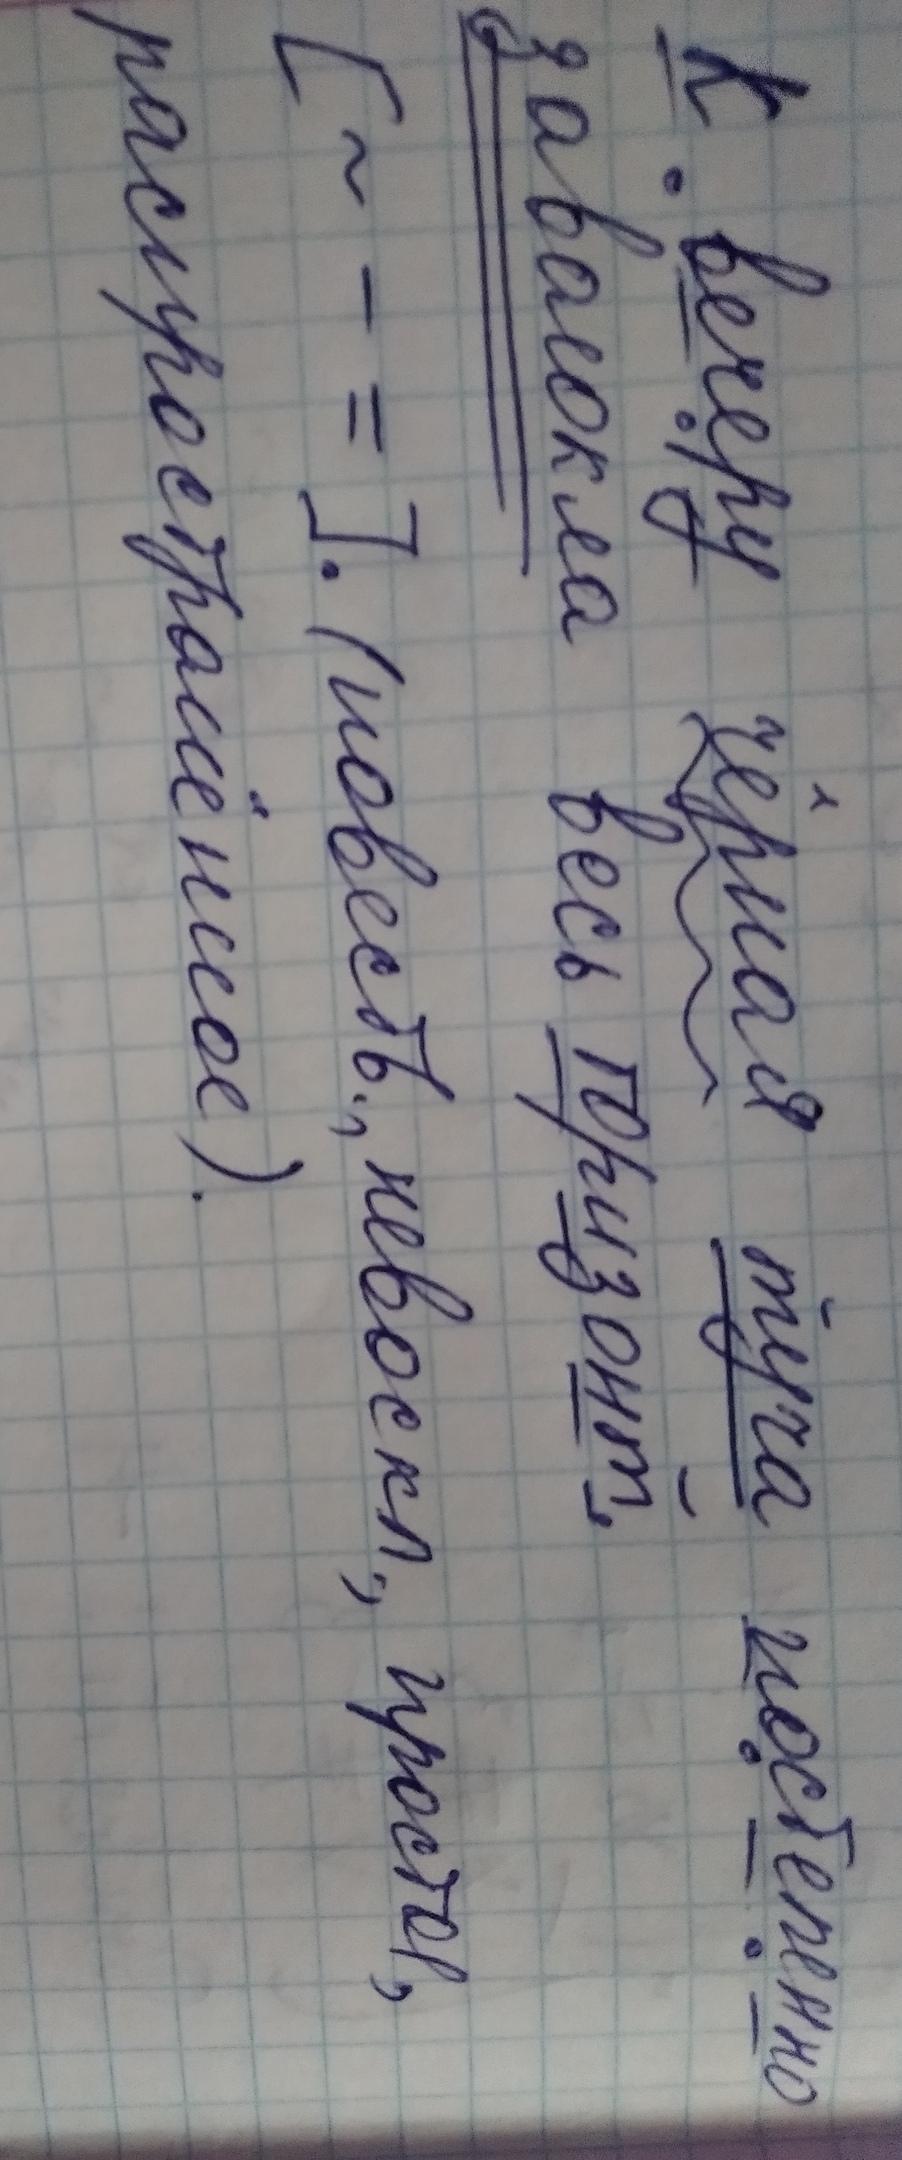 К вечеру чёрная туча постепенно
заволокла весь горизонт.
[~ - =]. (повеств., невоскл., простое,
распространённое).